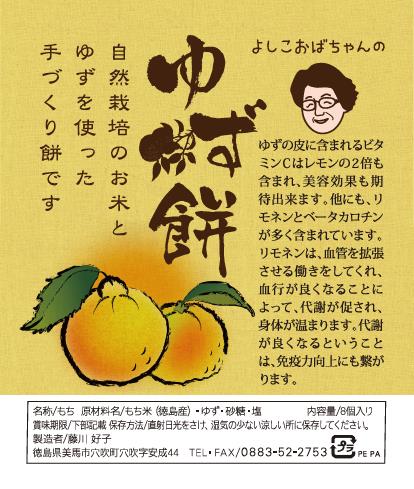 よしこおばちゃんの
ゆず餅
自然栽培のお米と
ゆずを使った
手づくり餅です
ゆずの皮に含まれるビタ
ミンCはレモンの2倍も
含まれ、美容効果も期
待出来ます。他にも、リ
モネンとベータカロチン
が多く含まれています。
リモネンは、血管を拡張
させる働きをしてくれ、
血行が良くなることに
よって、代謝が促され、
身体が温まります。代謝
が良くなるということ
は、免疫力向上にも繋が
ります。
名称/もち 原材料名/もち米(徳島産)・ゆず・砂糖・塩 内容量/8個入り
賞味期限/下部記載 保存方法/直射日光をさけ、湿気の少ない涼しい所に保存してください。
製造者/藤川 好子
徳島県美馬市穴吹町穴吹字安成44 TEL・FAX/0883-52-2753 プラ PE PA